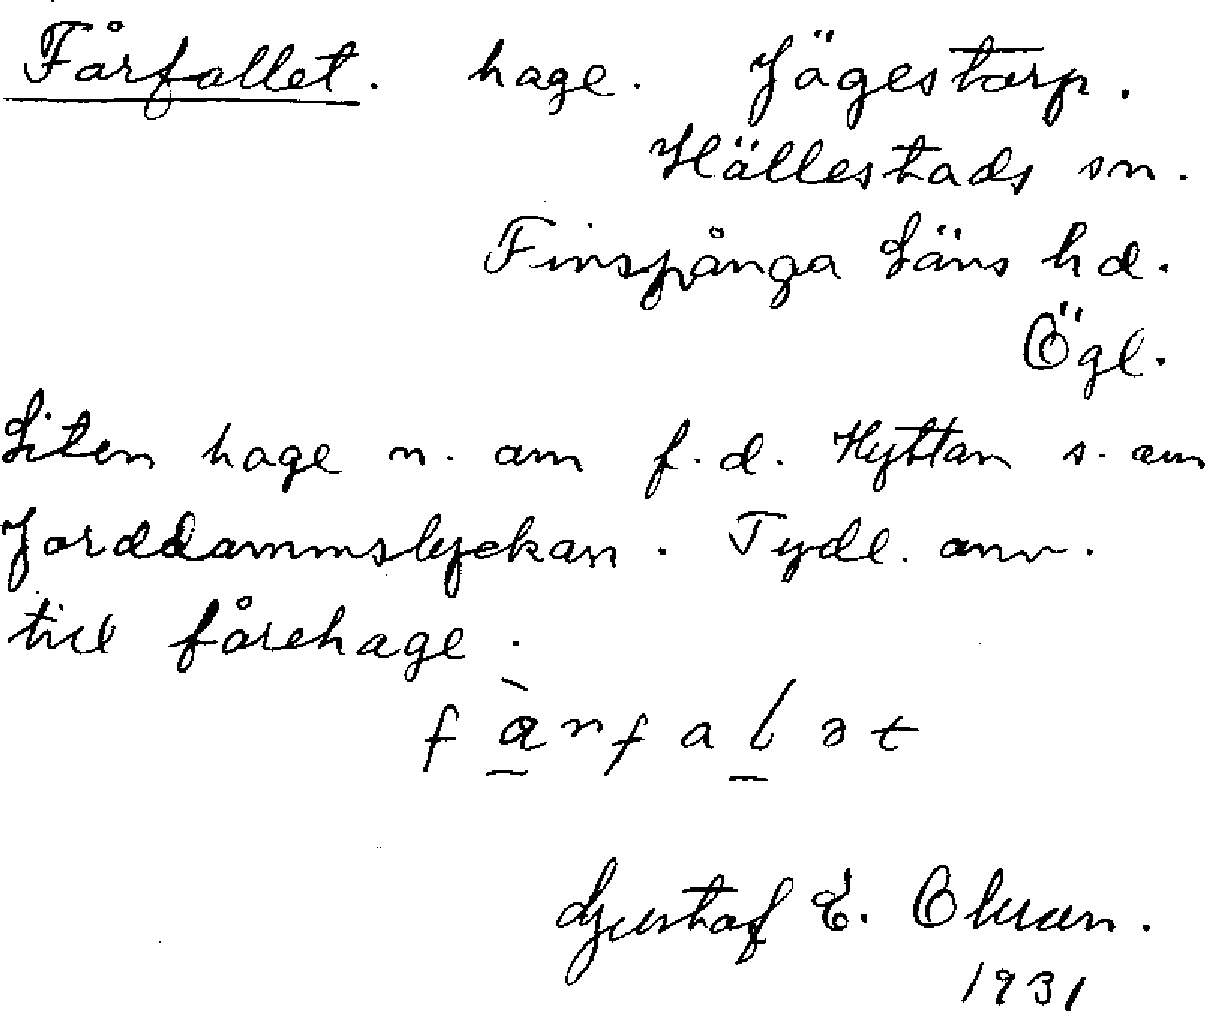 Fårfallet. hage. Jägestorp.
Hällestads sn.
Finspånga Läns hd.
Ögl.
Liten hage n. om f.d. Hyttan s. om
Jorddammslyckan. Tydl. anv.
till fårehage.
f à r f a l ə t
Gustaf E. Olsson.
1931